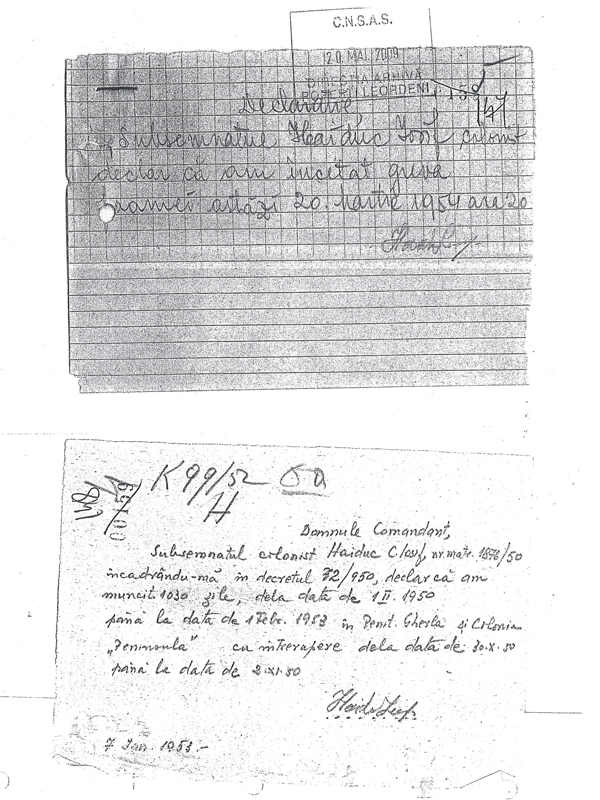 C.N.S.A.S.
20. MAI. 2009
DIRECȚIA ARHIVĂ
POPEȘTI LEORDENI
Declarație
Subsemnatul Haiduc Iosif colonist
declar că am încetat greva
foamei astăzi 20. Martie 1954 ora 20
K 99/52
H
00159
Domnule Comandant,
Subsemnatul colonist Haiduc C. Iosif, nr. matr. 1876/50
încadrându-mă în decretul 72/950, declar că am
muncit 1030 zile, dela data de 1 II. 1950
până la data de 1 Febr. 1953 în Penit. Gherla și Colonia
„Peninsula" cu întrerupere dela data de 30.X.50
până la data de 2.XI.50
7 Ian. 1953.-